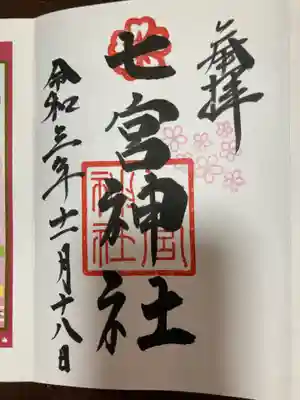 奉拝
七宮神社
令和三年十一月十八日